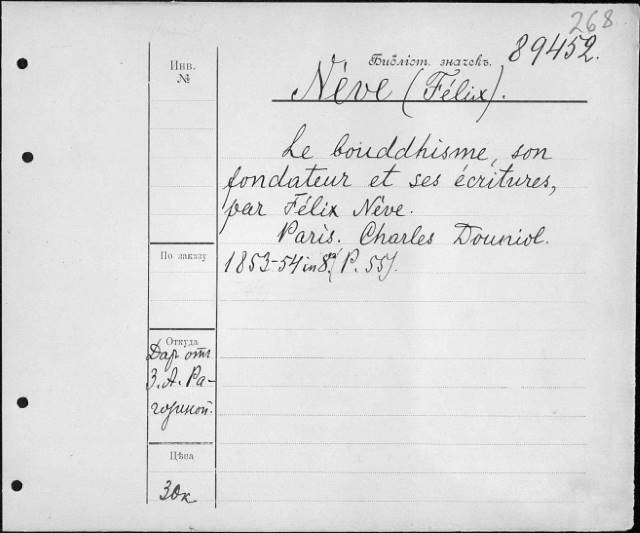 268
Инв.
№
Библіот. значекъ.
89452.
Nève (Félix).
Le bouddhisme, son
fondateur et ses écritures,
par Félix Nève.
Paris. Charles Douniol.
1853-54 in 8º (P. 55).
По заказу
Откуда
Дар отъ
З. А. Ра-
гозиной.
Цѣна
30к